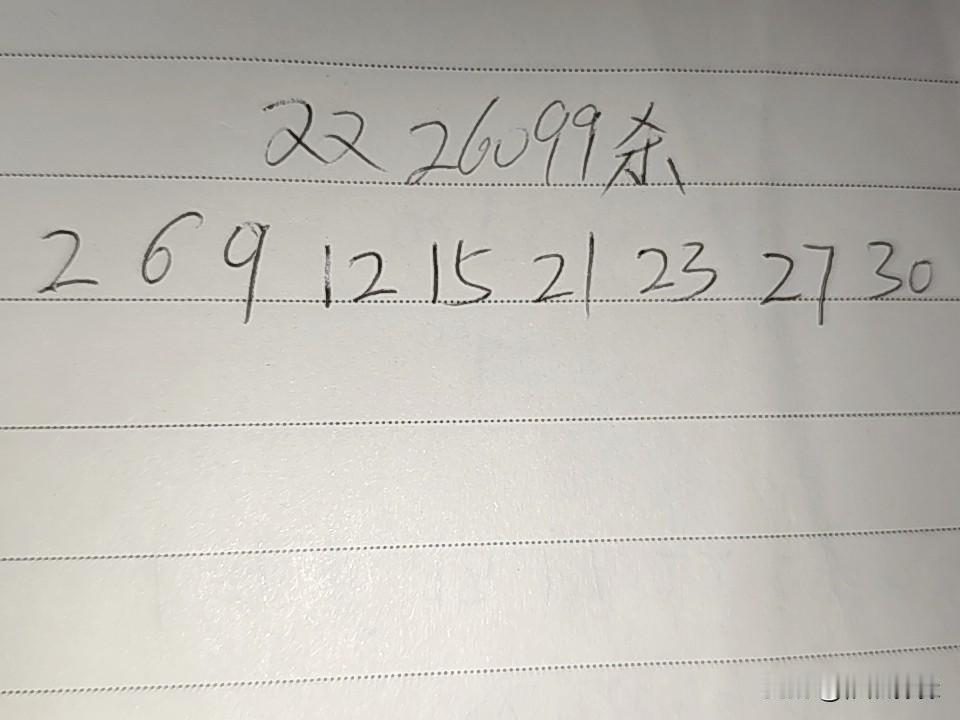 双 26099杀
2 6 9 12 15 21 23 27 30